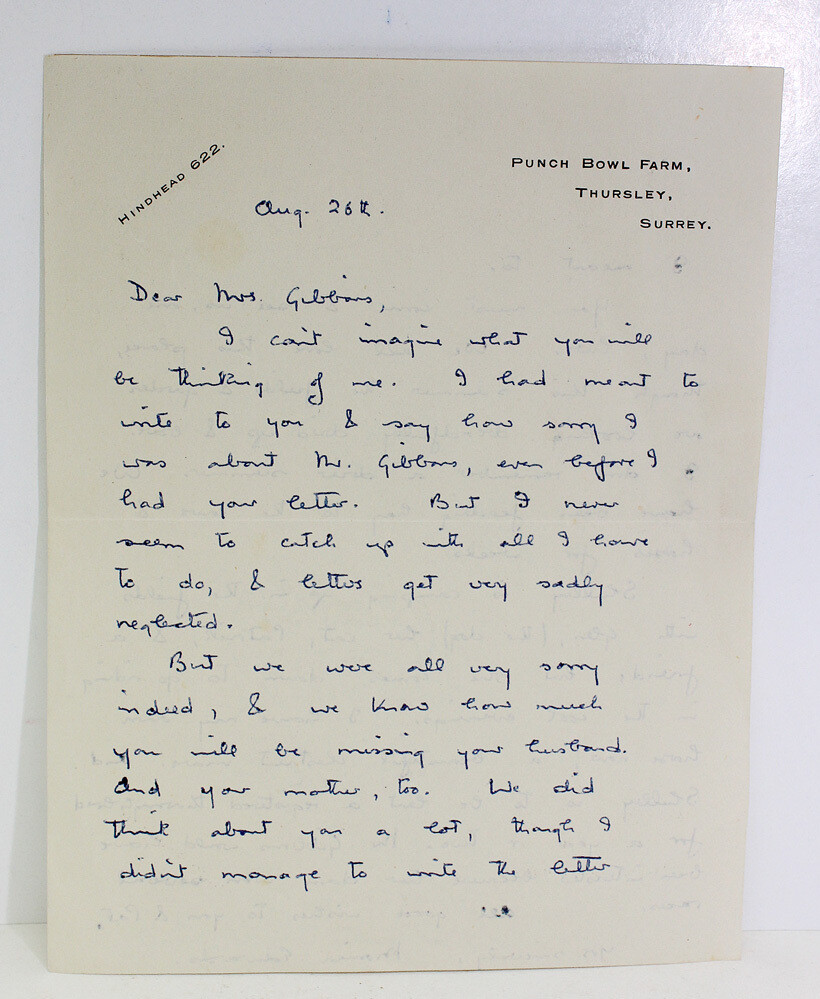 HINDHEAD 622.
PUNCH BOWL FARM,
THURSLEY,
SURREY.
Aug. 26th.
Dear Mrs. Gibbons,
I can't imagine what you will
be thinking of me. I had meant to
write to you & say how sorry I
was about Mr. Gibbons, even before I
had your letter. But I never
seem to catch up with all I have
to do, & letters get very sadly
neglected.
But we were all very sorry
indeed, & we know how much
you will be missing your husband.
And your mother, too. We did
think about you a lot, though I
didn't manage to write the letter